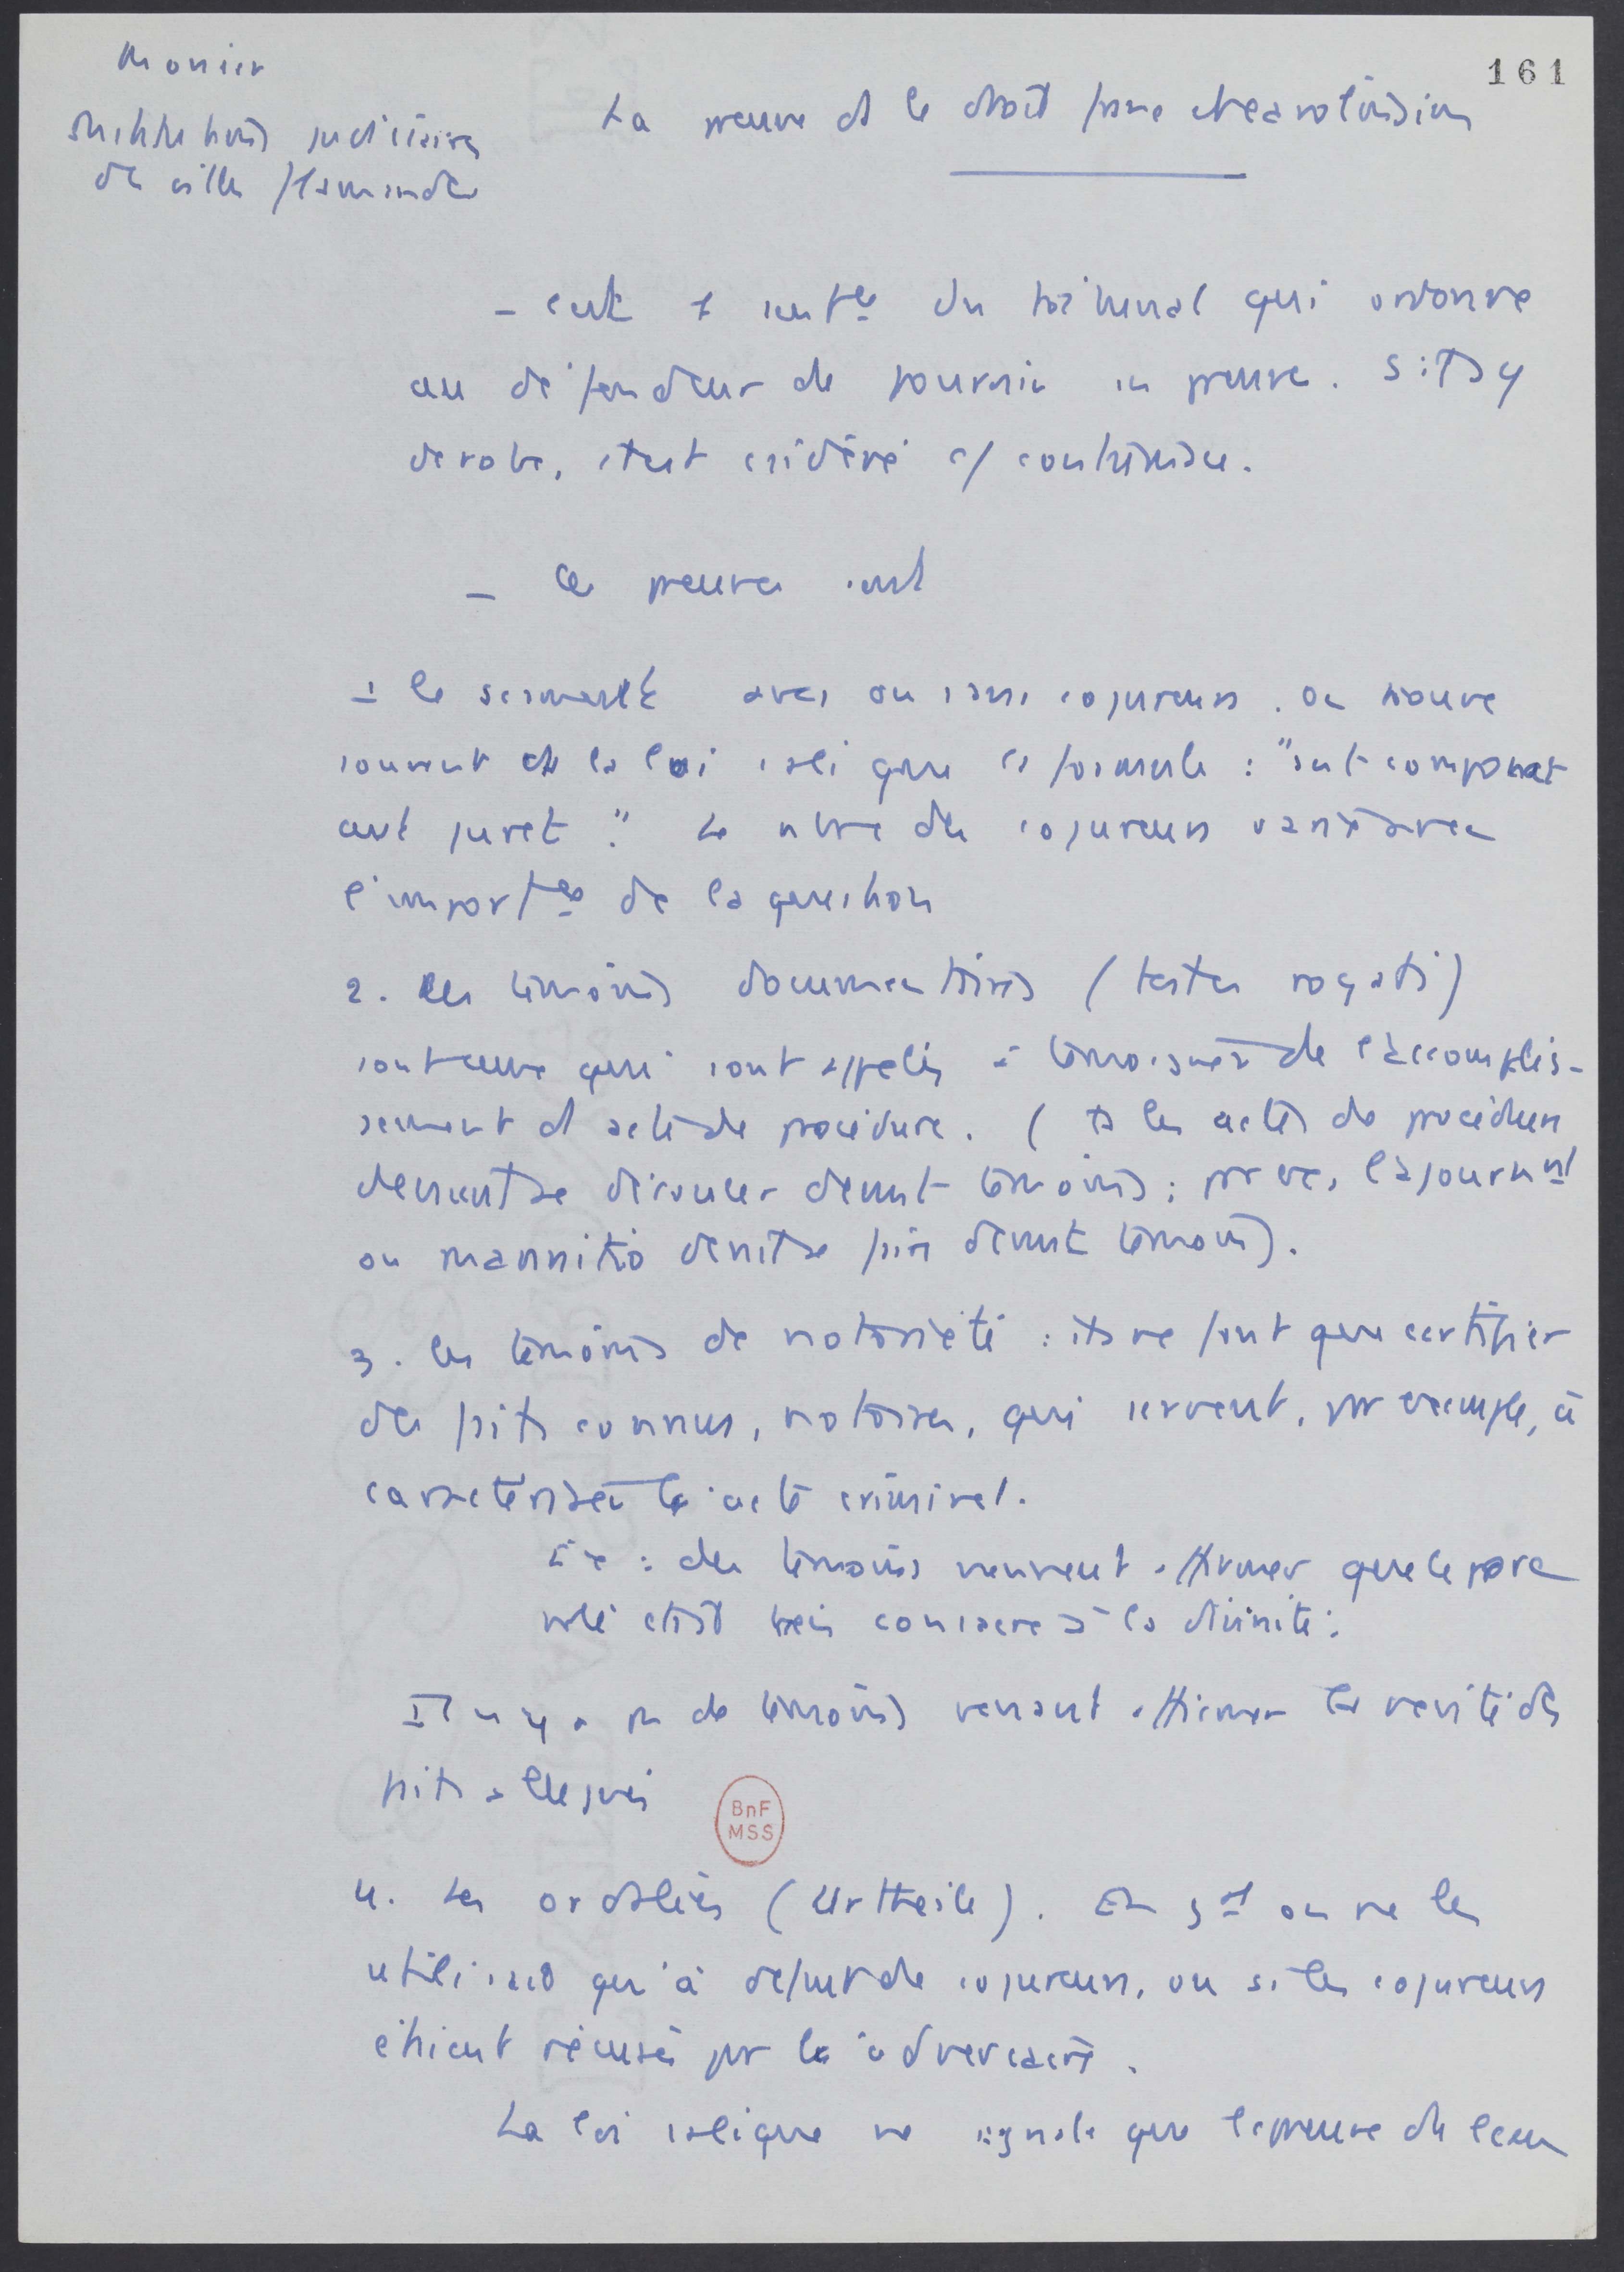 161
Monier
Institutions judiciaires
des villes flamandes
La preuve ds le droit franc et carolingien
- c'est 1 sentce du tribunal qui ordonne
au défendeur de fournir sa preuve. S'il s'y
dérobe, il est considéré c/ contumace.
- Ces preuves sont
1 le serment avec ou sans cojureurs. on trouve
souvent ds la loi salique la formule : "aut componat
aut juret". Le nbre des cojureurs varie avec
l'importce de la question
2. les témoins documentaires (testes rogati)
sont ceux qui sont appelés à témoigner de l'accomplis-
sement d'actes de procédure. (ts les actes de procédure
devaient se dérouler devant témoins ; par ex, l'ajournt
ou mannitio devait se faire devant témoins).
3. les témoins de notoriété : ils ne font que certifier
des faits connus, notoires, qui servent, par exemple, à
caractériser l'acte criminel.
Ex : des témoins viennent affirmer que le porc
volé était bien consacré à la divinité.
Il n'y a pas de témoins venant affirmer la vérité des
faits allegués
BnF
MSS
4. Les ordalies (Urtheile). En gal on ne les
utilisait qu'à défaut de cojureurs, ou si les cojureurs
étaient récusés par l'adversaire.
La loi salique ne signale que l'épreuve de l'eau